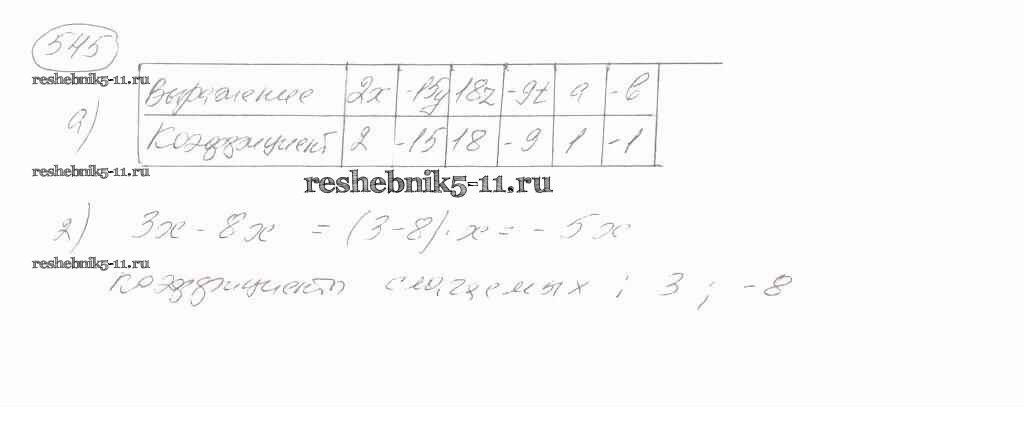 545
reshebnik5-11.ru
а)
Выражение 2x -15y 18z -9t a -b
Коэффициент 2 -15 18 -9 1 -1
reshebnik5-11.ru
reshebnik5-11.ru
2) 3x - 8x = (3-8)·x = -5x
reshebnik5-11.ru
коэффициенты слагаемых: 3; -8